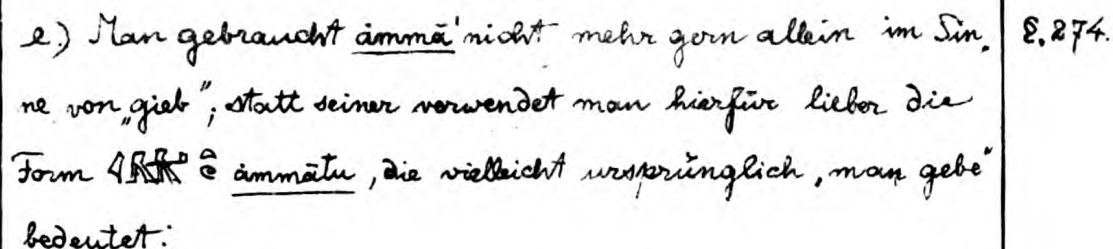 e.) Man gebraucht ȧmmā' nicht mehr gern allein im Sin- §.274.
ne von „gieb"; statt seiner verwendet man hierfür lieber die
Form ê ȧmmātu, die vielleicht ursprünglich „man gebe"
bedeutet: